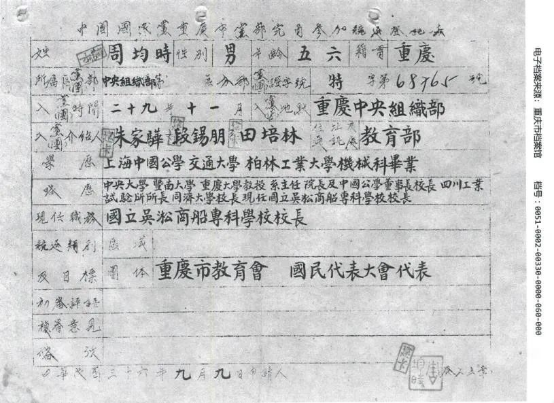 中國國民黨重慶市黨部黨員參加競選登記表
姓名 周均時 性別 男 年齡 五六 籍貫 重慶
所屬區黨部 中央組織部 區分部 黨團證字號 特字第68765號
入黨團時間 二十九年十一月 入黨團地點 重慶中央組織部
入黨團介紹人 朱家驊 段錫朋 田培林 教育部
學歷 上海中國公學 交通大學 柏林工業大學機械科畢業
經歷 中央大學 暨南大學 重慶大學教授 系主任 院長及中國公學董事長校長 四川工業
試驗所所長 同濟大學校長 現任國立吳淞商船專科學校校長
現任職務 國立吳淞商船專科學校校長
競選類別 區域
及目標 團体 重慶市教育會 國民代表大會代表
初審評語
複審意見
備註
中華民國三十六年九月九日申請人
电子档案来源：重庆市档案馆
档号：0051-0002-00330-0000-060-000